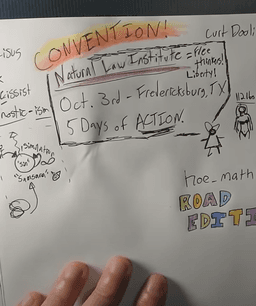 CONVENTION!
Curt Dooli
isus
Natural Law Institute = Free thinkers!
Liberty!
Oct. 3rd - Fredericksburg, TX
5 Days of ACTION.
cissist
nostic-ism
112 lbs
"Samsara"
hoe_math
ROAD
EDITI